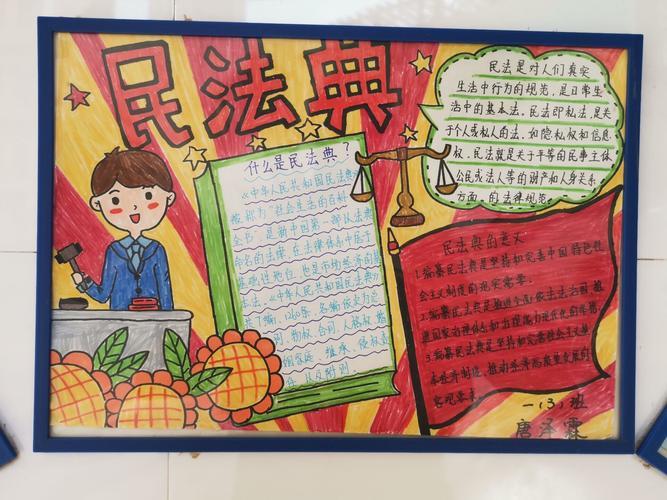 民法典
什么是民法典?
《中华人民共和国民法典》
被称为"社会生活的百科
全书",是新中国第一部以法典
命名的法律,在法律体系中居于
基础性地位,也是市场经济的基
本法。《中华人民共和国民法典》
共7编、1260条,各编依次为总
则、物权、合同、人格权、婚
姻家庭、继承、侵权责
任、以及附则。
民法是对人们真实
生活中行为的规范,是日常生
活中的基本法。民法即私法,是关
于个人或私人的法,如隐私权和信息
权。民法就是关于平等的民事主体
公民或法人等的财产和人身关系
方面的法律规范。
民法典的意义
1.编纂民法典是坚持和完善中国特色社
会主义制度的现实需要。
2.编纂民法典是推进全面依法治国、推
进国家治理体系和治理能力现代化的
3.编纂民法典是坚持和完善社会主义
基本经济制度、推动经济高质量发展的
客观要求。
一(3)班
唐泽霖